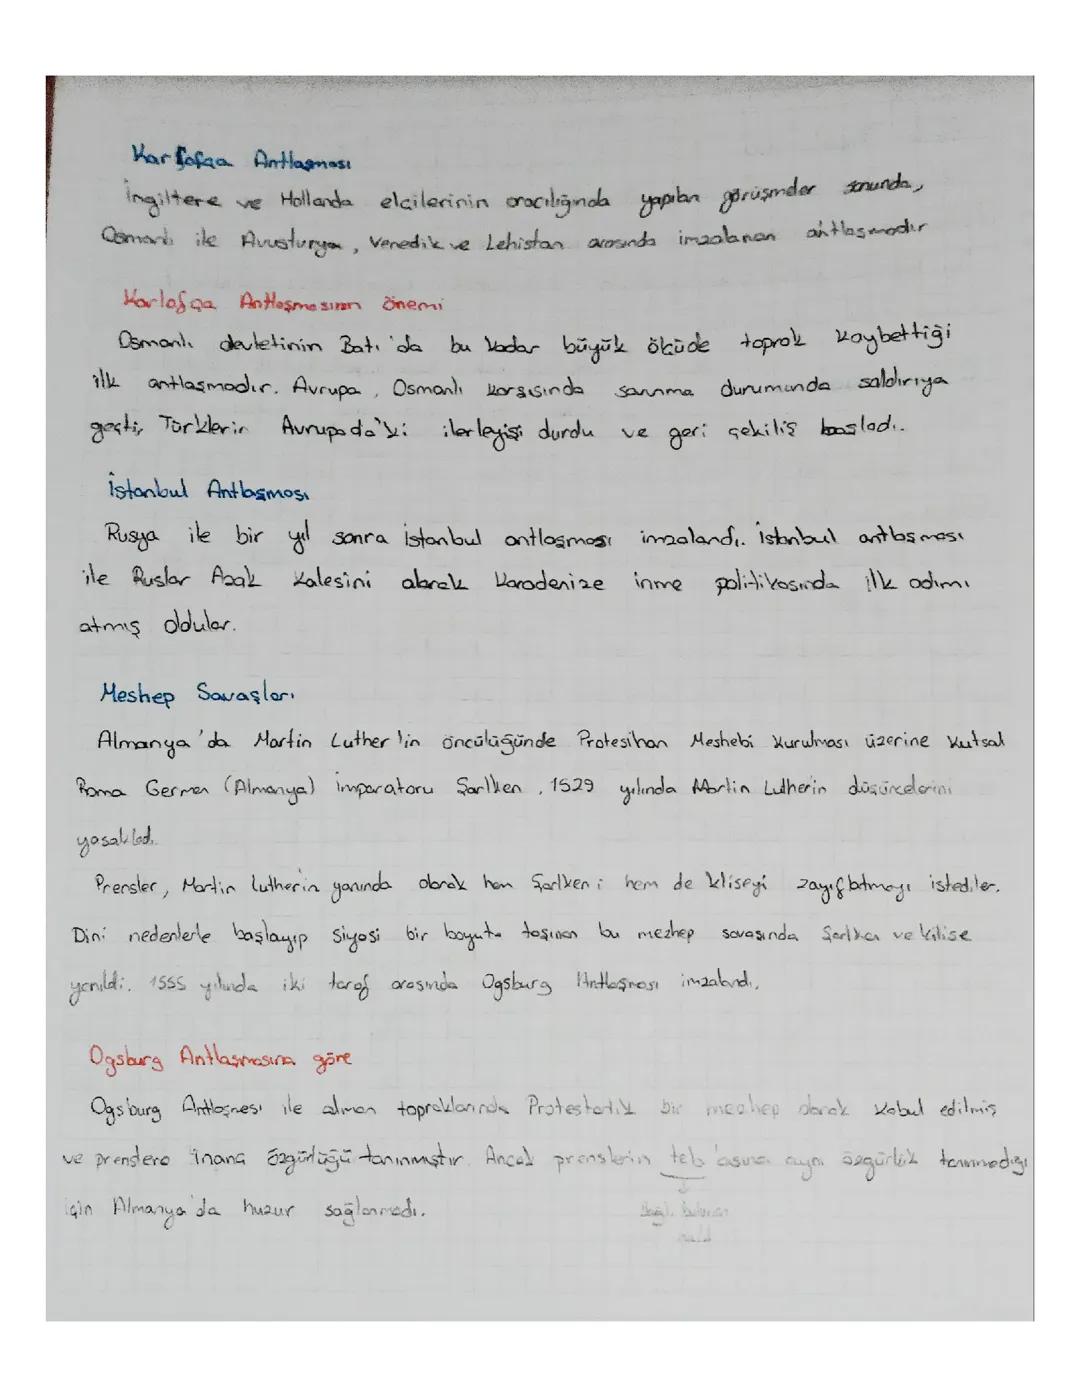 Karlofça Antlaşması
İngiltere ve Hollanda elcilerinin aracılığında yapılan görüşmeler sonunda,
Osmanlı ile Avusturya, Venedik ve Lehistan arasında imzalanan antlaşmadır
Karlofça Antlaşmasının önemi
Osmanlı devletinin Batı'da bu kadar büyük ölçüde toprak kaybettiği
ilk antlaşmadır. Avrupa, Osmanlı karşısında savunma durumunda saldırıya
geçti, Türklerin Avrupada'ki ilerleyişi durdu ve geri çekiliş başladı.
İstanbul Antlaşması
Rusya ile bir yıl sonra İstanbul antlaşması imzalandı. İstanbul antlaşması
ile Ruslar Azak Kalesini alarak Karadenize inme politikasında ilk adımı
atmış oldular.
Meshep Savaşları
Almanya'da Martin Luther'in öncülüğünde Protesihan Meshebi Kurulması üzerine Kutsal
Roma Germen (Almanya) imparatoru Şarlken, 1529 yılında Martin Lutherin düşüncelerini
yasakladı.
Prensler, Martin Lutherin yanında olarak hem Şarlkeni hem de kliseyi zayıflatmayı istediler.
Dini nedenlerle başlayıp siyasi bir boyuta taşınan bu mezhep savaşında Şarlken ve kilise
yenildi. 1555 yılında iki taraf arasında Ogsburg Antlaşması imzalandı.
Ogsburg Antlaşmasına göre
Ogsburg Antlaşması ile alman topraklarında Protestanlık bir mezhep olarak kabul edilmiş
ve prenslere inanç özgürlüğü tanınmıştır. Ancak prenslerin teb'asına aynı özgürlük tanınmadığı
için Almanya'da huzur sağlanmadı.
Bağlı bulunan
halk